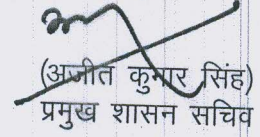 (अजीत कुमार सिंह)
प्रमुख शासन सचिव